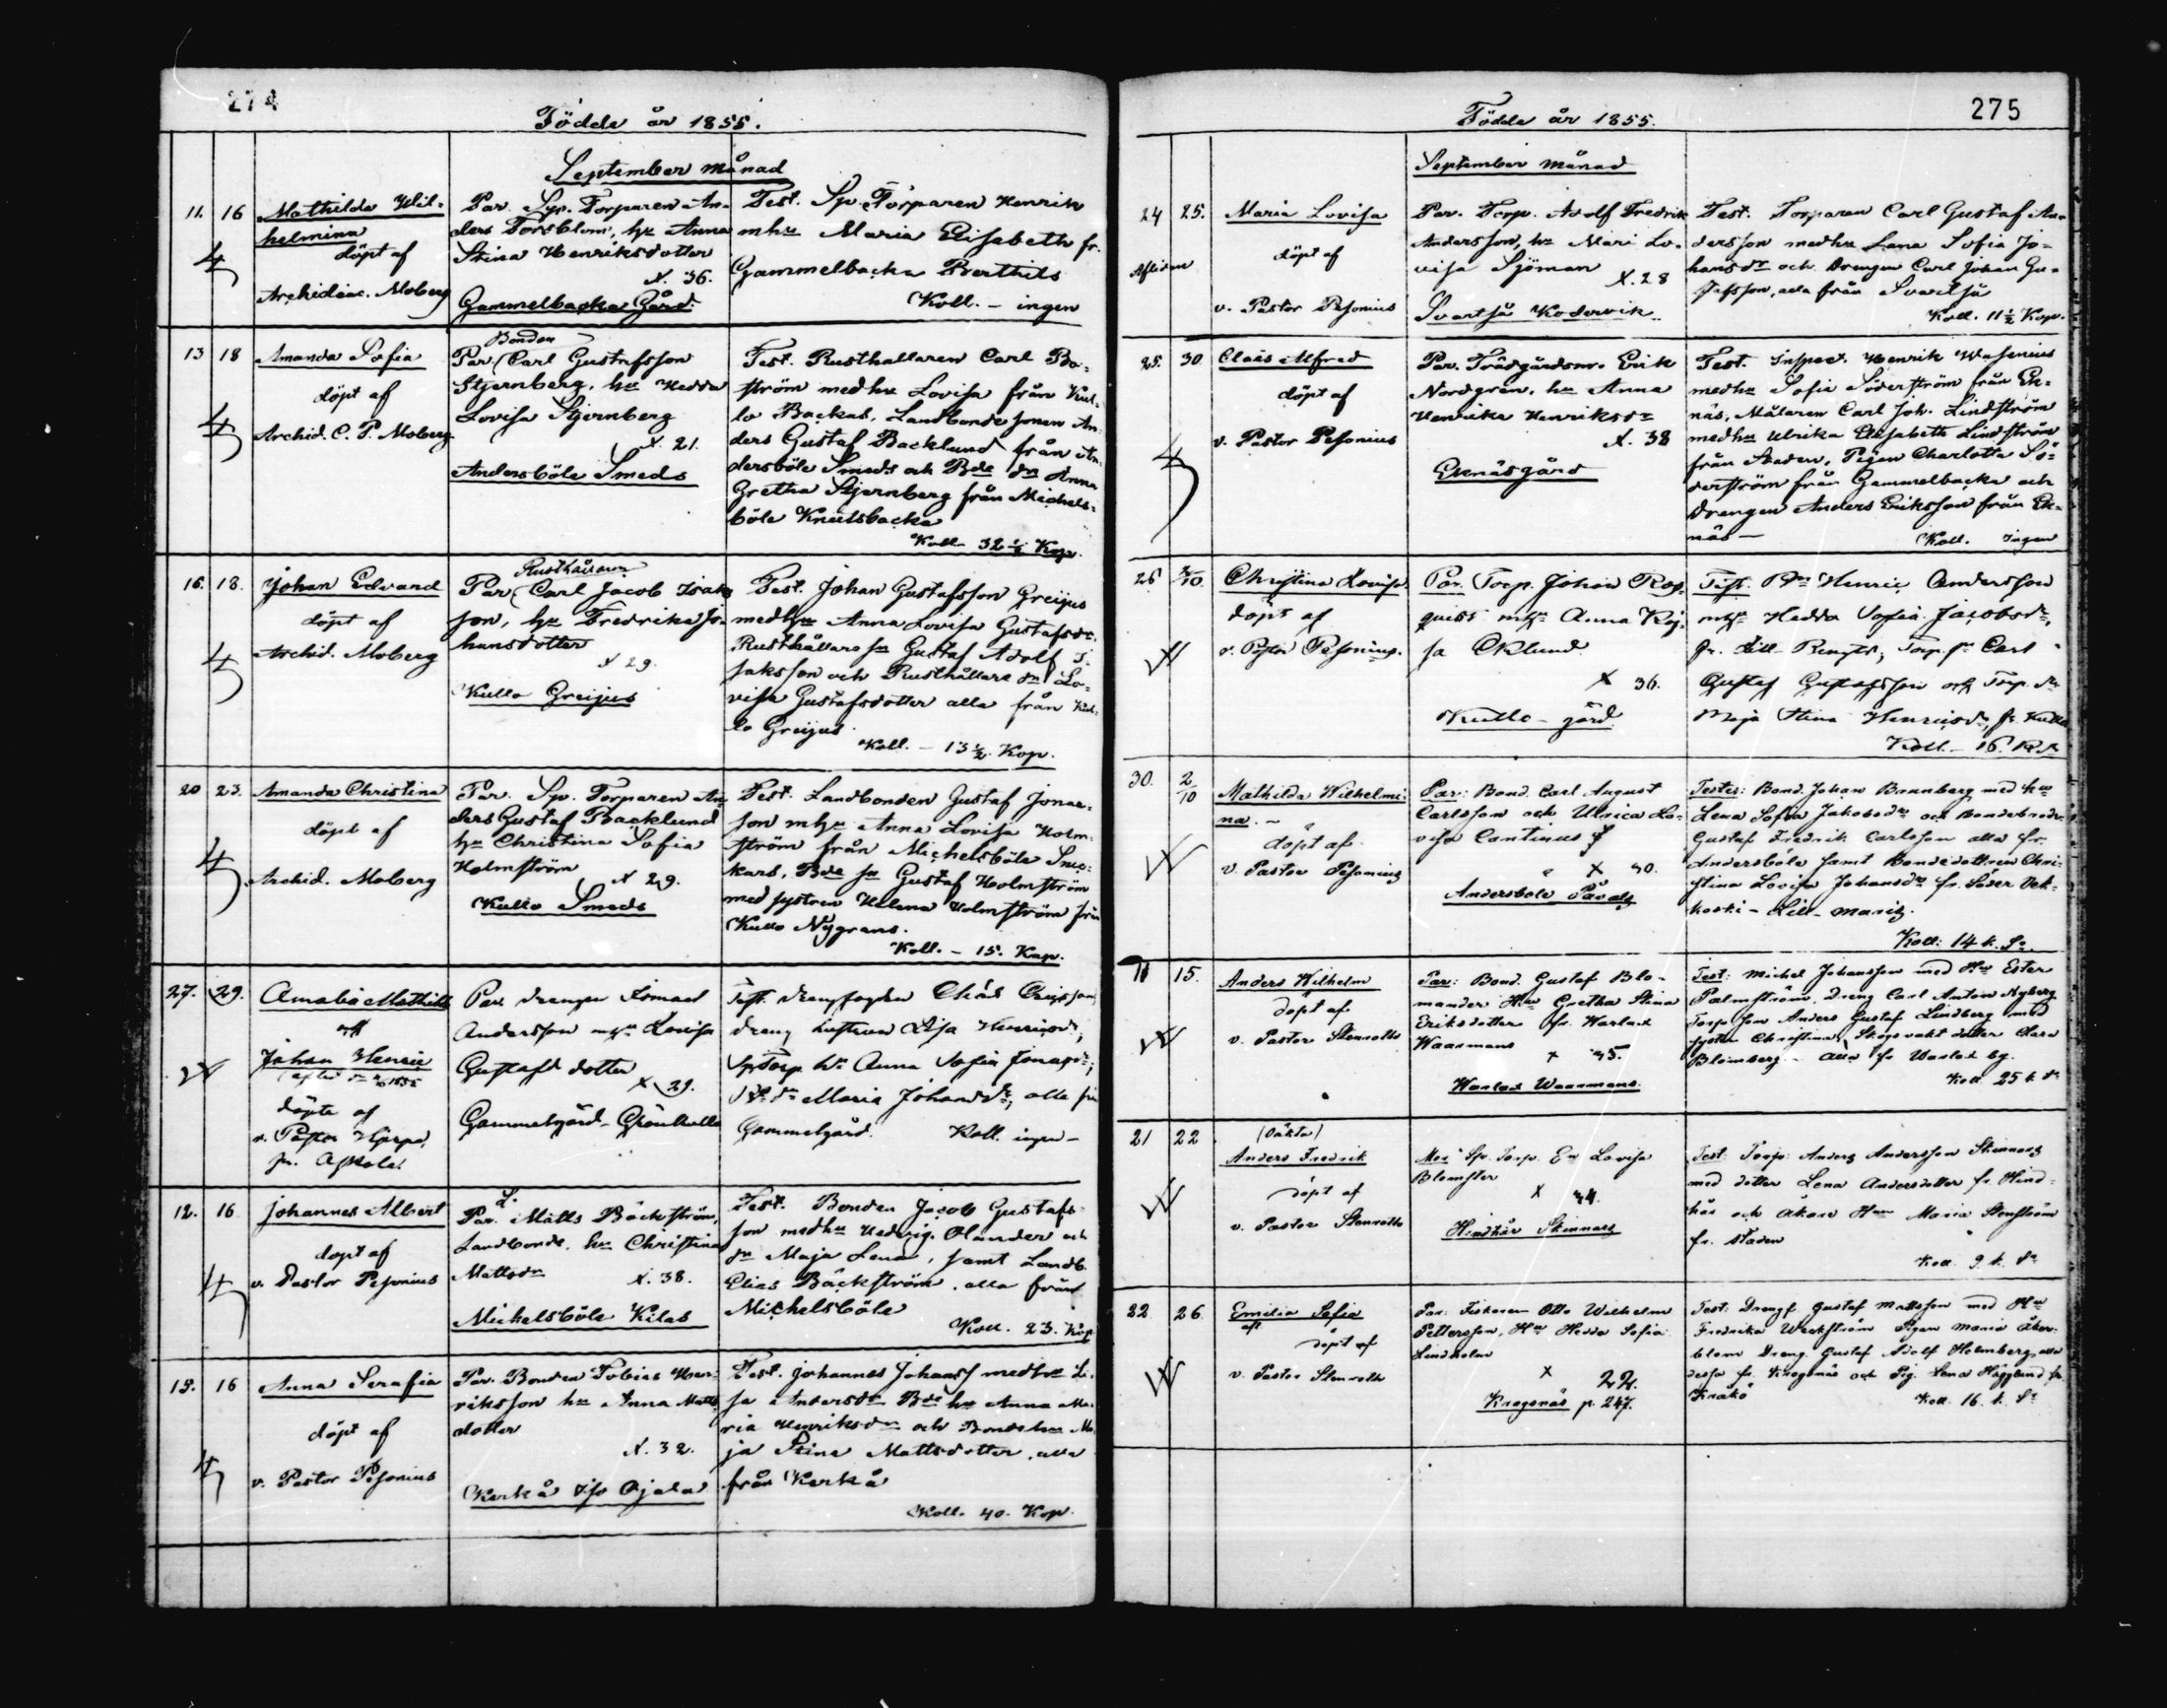 274
Födde år 1855.
September månad
11. 16 Mathilda Wil-
helmina
döpt af
Archidiac. Moberg
Par. Sp. Torparen An-
ders Forsblom, hu Anna
Stina Henriksdotter
X. 36.
Gammelbacka Gård
Test. Sp. Torparen Henrik
mhu Maria Elisabeth fr.
Gammelbacka Berthils
Koll. - ingen
13 18 Amanda Sofia
döpt af
Archid. C. P. Moberg
Bonden
Par. Carl Gustafsson
Stjernberg, hu Hedda
Lovisa Stjernberg
X. 21.
Andersböle Smeds
Test. Rusthallaren Carl Bo-
ström medhu Lovisa från Kul-
lo Backas, Landbondesonen An-
ders Gustaf Backlund från An-
dersböle Smeds och Bde dr Anna
Gretha Stjernberg från Michels-
böle Knutsbacka
Koll. 32 ½ Kop.
16. 18. Johan Edvard
döpt af
Archid. Moberg
Rusthållaren
Par. Carl Jacob Isaks
son, hu Fredrika Jo-
hansdotter
X 29.
Kullo Greijus
Test. Johan Gustafsson Greijus
medhu Anna Lovisa Gustafsdr.
Rusthållare sn Gustaf Adolf I-
saksson och Rusthållare dr Lo-
visa Gustafsdotter alla från Kul-
lo Greijus.
Koll. - 13 ½ Kop.
20 23. Amanda Christina
döpt af
Archid. Moberg
Par. Sp. Torparen An-
ders Gustaf Backlund
hu Christina Sofia
Holmström
X 29.
Kullo Smeds
Test. Landbonden Gustaf Jonas-
son mhu Anna Lovisa Holm-
ström från Michelsböle
Bde sn Gustaf Holmström
med systren Helena Holmström från
Kullo Nygrans.
Koll. - 15. Kop.
27. 29. Amalia Mathilda
och
Johan Henric
döpte af
v. Pastor
fr. Askola.
Par. drengen
Andersson mhu Lovisa
Gustafsdotter
X 29.
Gammelgård
Test.
dreng hustrun Lisa Henricsdr,
Sp Torp. hu Anna Sofia Jonasdr;
Maria Johansdr, alla från
Gammelgård. Koll. ingen -
12. 16 Johannes Albert
döpt af
v. Pastor Pesonius
Par. Matts Bäckström,
Landbonde, hu Christina
Mattsdr X. 38.
Michelsböle Kilas
Test. Bonden Jacob Gustafs-
son medhu Hedvig Olander och
dr Maja Lena, samt Landb.
Elias Bäckström, alla från
Michelsböle
Koll. 23. Kop
15. 16 Anna Serafia
döpt af
v. Pastor Pesonius
Par. Bonden Tobias Hen-
riksson hu Anna Matts
dotter
X. 32.
Kerkå Ojala
Test. Johannes Johanss medhu Li-
sa Andersdr Bde hu Anna Ma-
ria Henriksdr och Bonde hu Ma-
ja Stina Mattsdotter, alla
från Kerkå
Koll. 40. Kop.
275
Födde år 1855.
September månad
24 25. Maria Lovisa
Afliden
döpt af
v. Pastor Pesonius
Par. Torp. Adolf Fredrik
Andersson, hu Mari Lo-
visa Sjöman
X. 28
Svartså Kodervik
Test. Torparen Carl Gustaf An-
dersson medhu Lena Sofia Jo-
hansdr och Drengen Carl Johan Gu-
stafsson, alla från Svartså
Koll. 11 ½ Kop.
25. 30 Claës Alfred
döpt af
v. Pastor Pesonius
Par. Trädgårdsm. Erik
Nordgren, hu Anna
Henrika Henriksdr
X. 38
Eknäsgård
Test. Inspect. Henrik Wasenius
medhu Sofia Söderström från Ek-
näs, Målaren Carl Joh. Lindström
medhu Ulrika Elisabeth Lindström
från Staden, Pigan Charlotta Sö-
derström från Gammelbacka och
Drengen Anders Eriksson från Ek-
näs -
Koll. ingen
26 2/10 Christina Lovisa
döpt af
v. Pastor Pesonius.
Par. Torp. Johan
mhu Anna Kaj-
sa Eklund
X 36.
Kullo gård
Test. Henric Andersson
mhu Hedda Sofia Jacobsdr,
fr. Lill- Carl
Gustaf Gustafsson och Torp. dr
Maja Stina Henricsdr, fr. Kullo
Koll. - 16.
30. 2/10 Mathilda Wilhelmi-
na. -
döpt af
v. Pastor Pesonius
Par: Bond. Carl August
Carlsson och Ulrica Lo-
visa Cantinus
X 40.
Andersböle Påvals
Testes: Bond. Johan Brunnberg med hu
Lena Sofia Jakobsdr och Bondebroder
Gustaf Fredrik Carlsson alla fr.
Andersböle samt Bondedottren Chri-
stina Lovisa Johansdr fr. Söder Vek-
koski - Lill-
Koll: 14 k. Sr.
11 15. Anders Wilhelm
döpt af
v. Pastor Stenroth
Par: Bond. Gustaf Blo-
mander Hu Gretha Stina
Eriksdotter fr. Warlax
Waarmans
X 45.
Warlax Waarmans
Test: Michel Johansson med Hu Ester
Palmström, Dreng Carl Anton Nyberg
Torp. son Anders Gustaf Lindberg med
syster Christina, Skogsvakt dotter Clara
Blomberg - alla fr Warlax by.
Koll 25 k. Sr
21 22 (Oäkta)
Anders Fredrik
döpt af
v. Pastor Stenroth
Mor: Sp. Torp. Eva Lovisa
Blomster
X 34.
Hindhår Skinnars
Test: Torp. Anders Andersson Skinnars
med dotter Lena Andersdotter fr. Hind-
hår och åkare Hu Maria Stenström
fr. Staden
Koll 9 k. Sr
22 26 Emilia Sofia
döpt af
v. Pastor Stenroth
Par: Fiskaren Otto Wilhelm
Pettersson, Hu Hedda Sofia
Lindholm
X 22.
Kragsnäs p. 247.
Test: Drengf. Gustaf Mattsson med Hu
Fredrika Werkström Pigan Maria Åker-
blom Dreng. Gustaf Adolf Holmberg, alla
dessa fr. Kragsnäs och Pig. Lena Hägglund fr.
Kråkö
Koll. 16. k. Sr